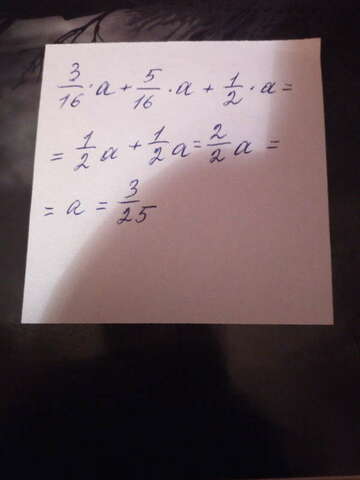 3/16 · a + 5/16 · a + 1/2 · a =
= 1/2 a + 1/2 a = 2/2 a =
= a = 3/25